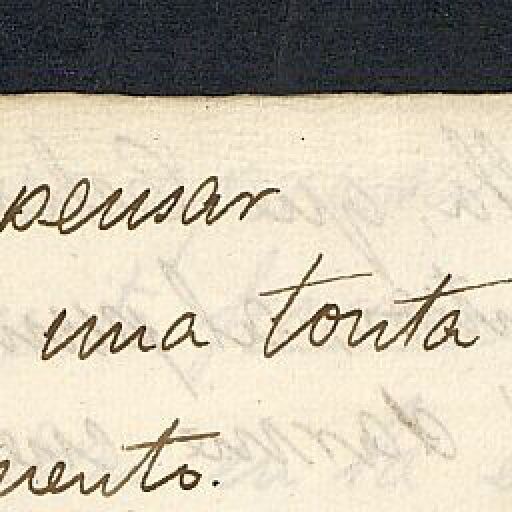 pensar
una tonta
mento.